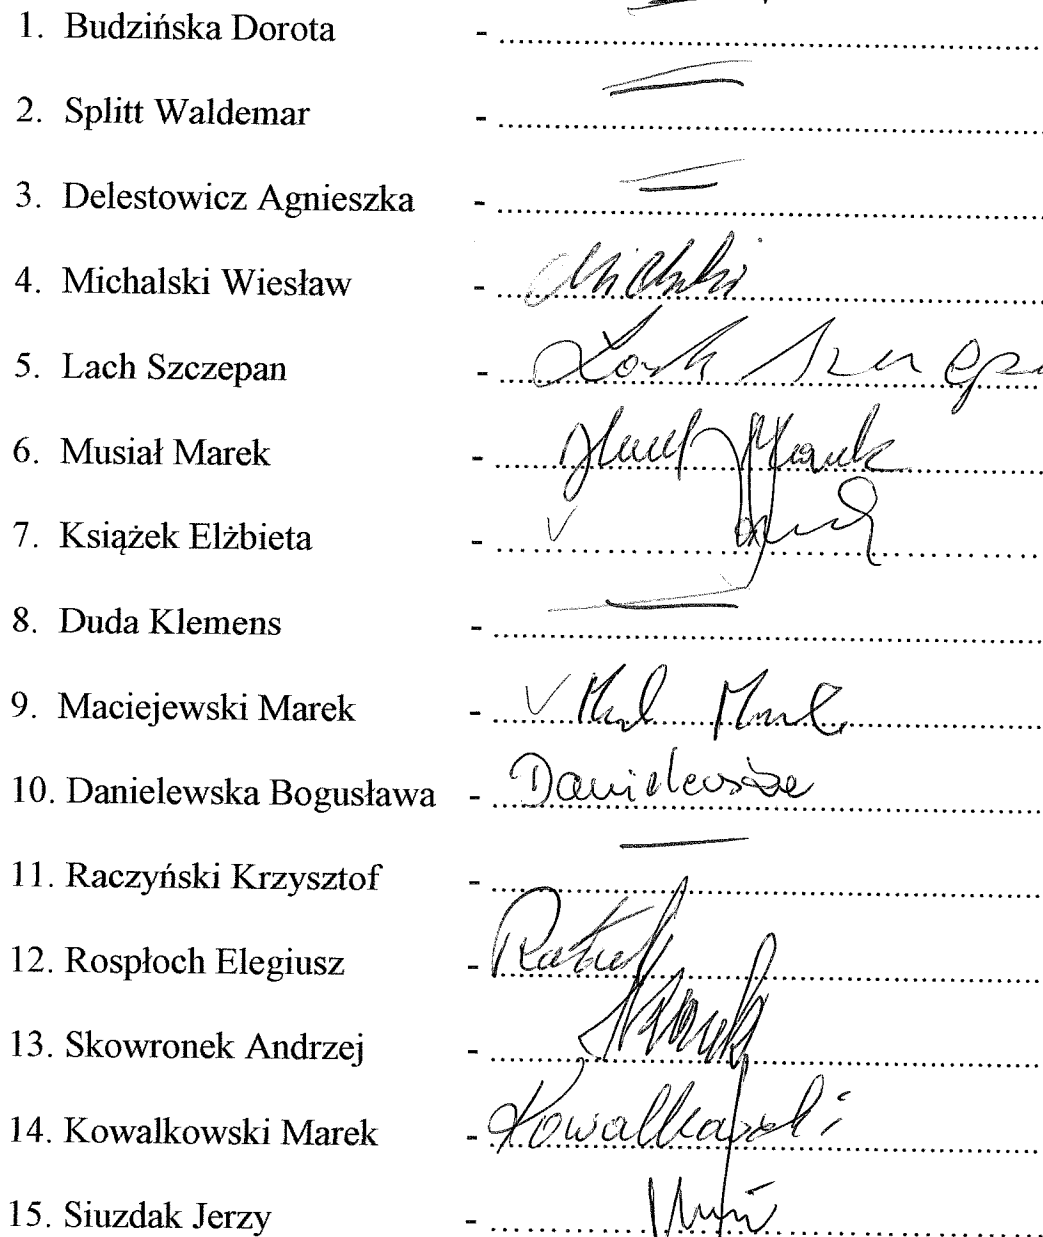 1. Budzińska Dorota - ................
2. Splitt Waldemar - ................
3. Delestowicz Agnieszka - ................
4. Michalski Wiesław - ................
5. Lach Szczepan - Lach Szczepa
6. Musiał Marek - ................ Marek
7. Książek Elżbieta - ................
8. Duda Klemens - ................
9. Maciejewski Marek - ................
10. Danielewska Bogusława - Danielewska
11. Raczyński Krzysztof - ................
12. Rospłoch Elegiusz - ................
13. Skowronek Andrzej - ................
14. Kowalkowski Marek - Kowalkowski
15. Siuzdak Jerzy - ................